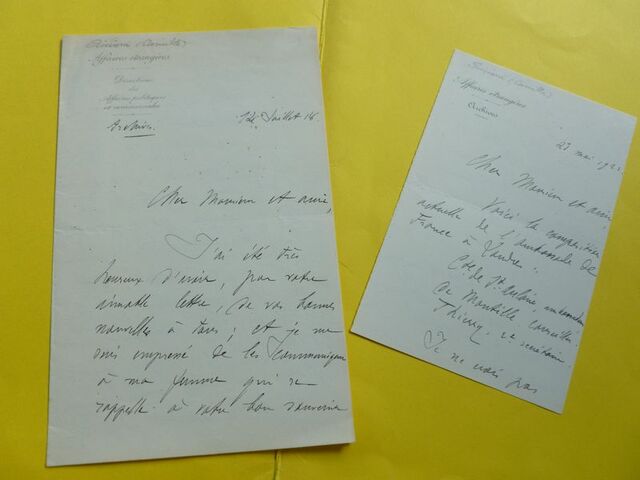 Affaires étrangères
Direction
des
Affaires politiques
et commerciales
Archives
12 Juillet 14
Cher Monsieur et ami,
J'ai été très
heureux d'avoir, par votre
aimable lettre, de vos bonnes
nouvelles à tous ; et je me
suis empressé de les communiquer
à ma femme qui se
rappelle à votre bon souvenir
Affaires étrangères
Archives
27 mai
Cher Monsieur et ami,
Voici la composition
actuelle de l'ambassade de
France à Londres.
Cte de St Aulaire, ambassadeur
De Montille, conseiller
Thierry, 2e secrétaire
Je ne vois pas